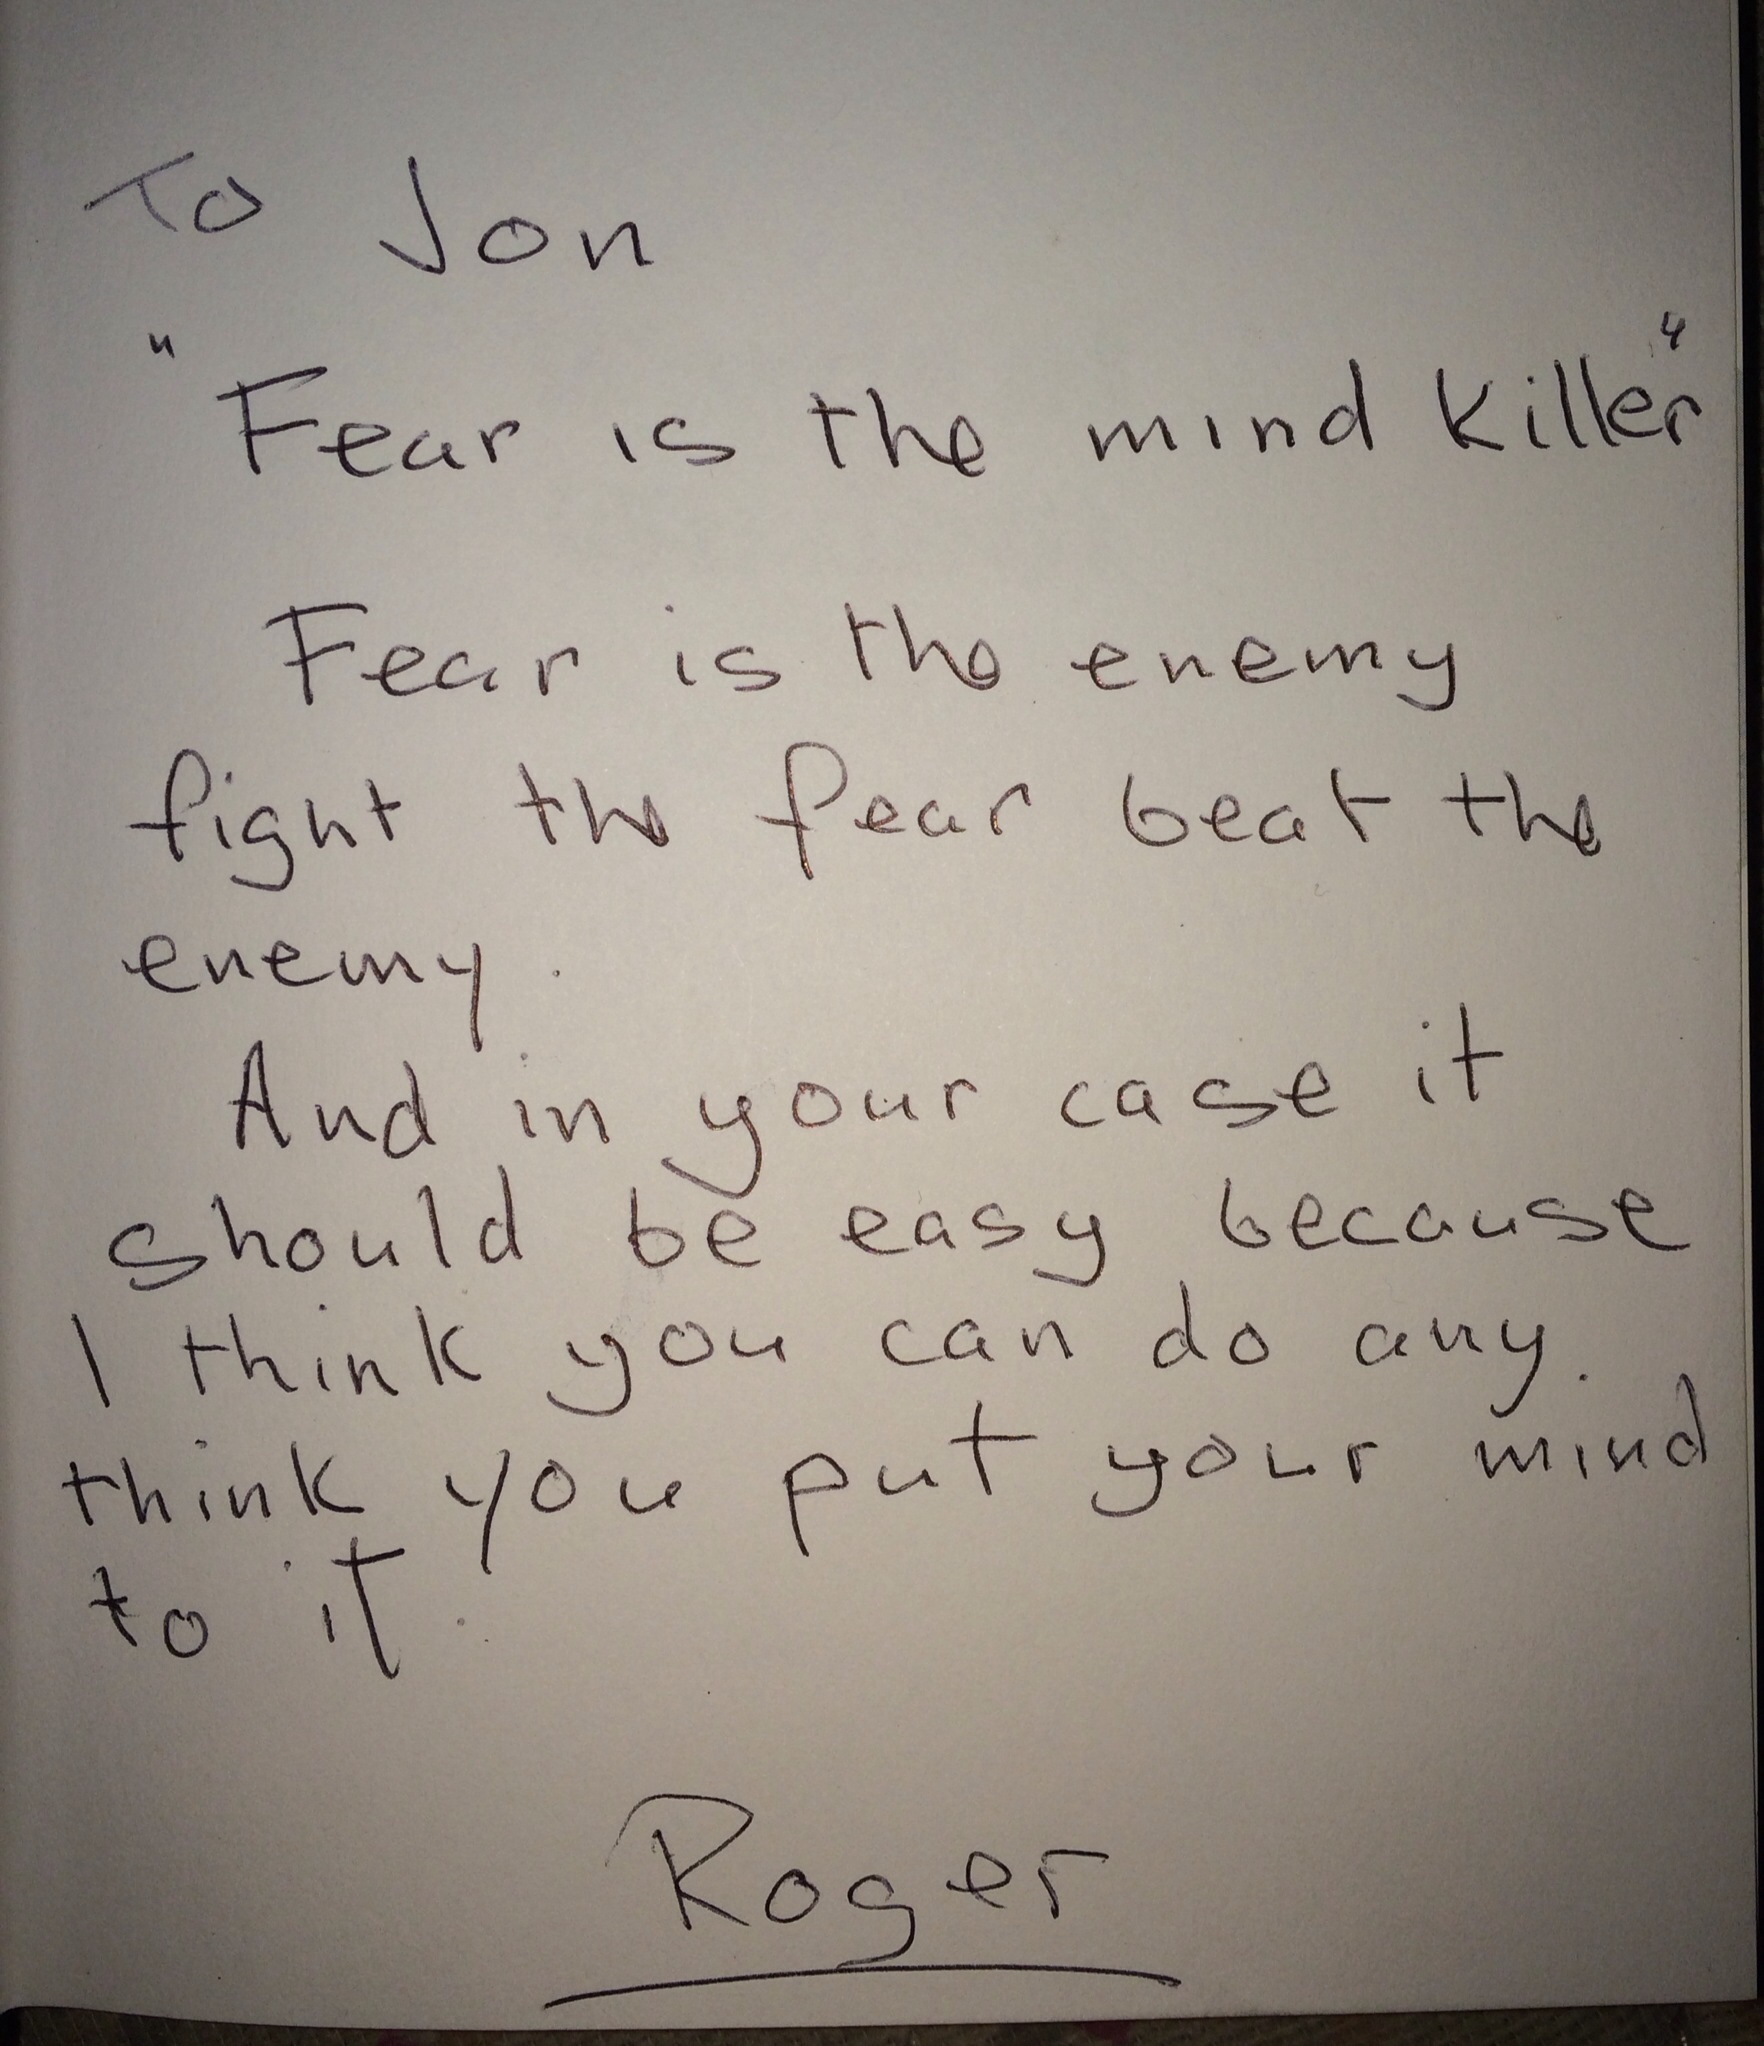 To Jon
"Fear is the mind killer"
Fear is the enemy
fight the fear beat the
enemy.
And in your case it
should be easy because
I think you can do any.
think you put your mind
to it.
Roger